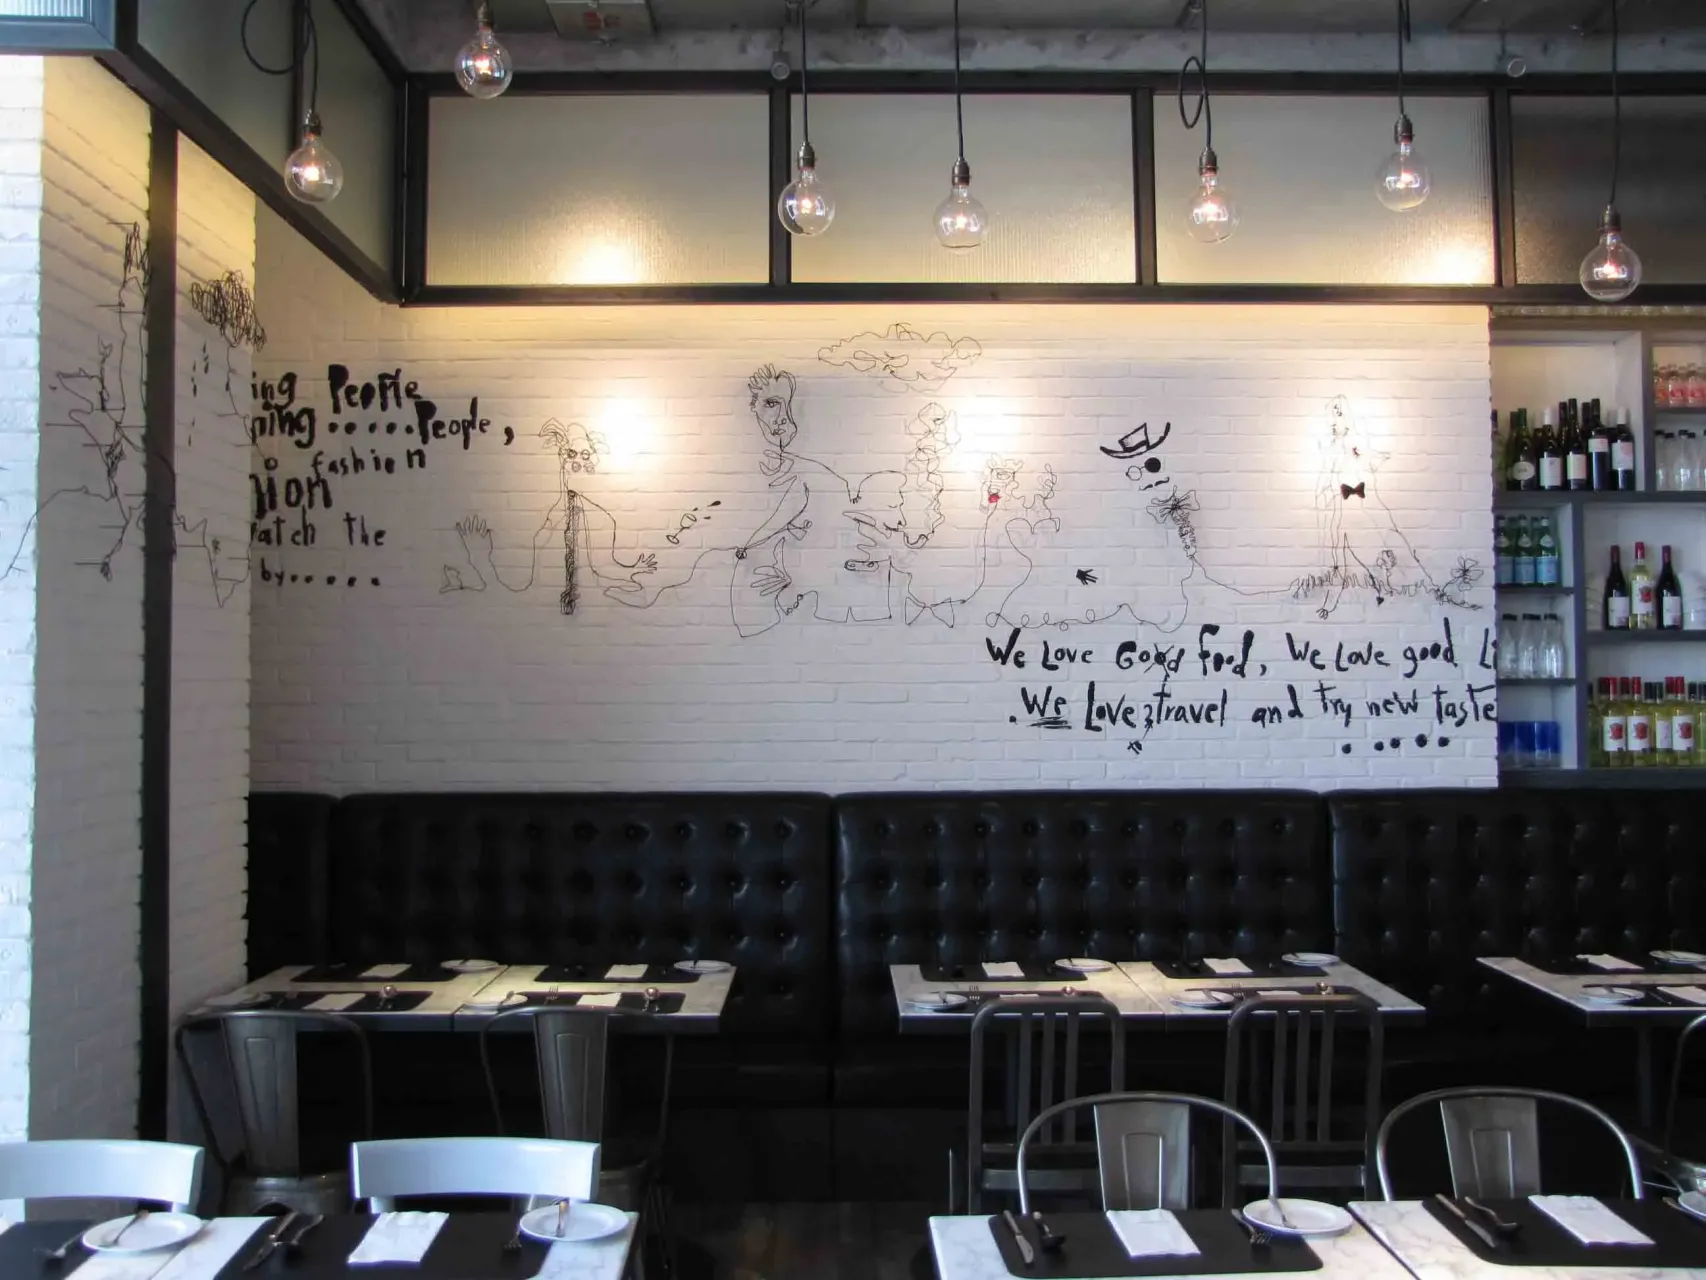 ing People
ning.....People,
fashion
hion
watch the
by.....
We Love Good food, We Love good Li
.We Love travel and try new taste
.....